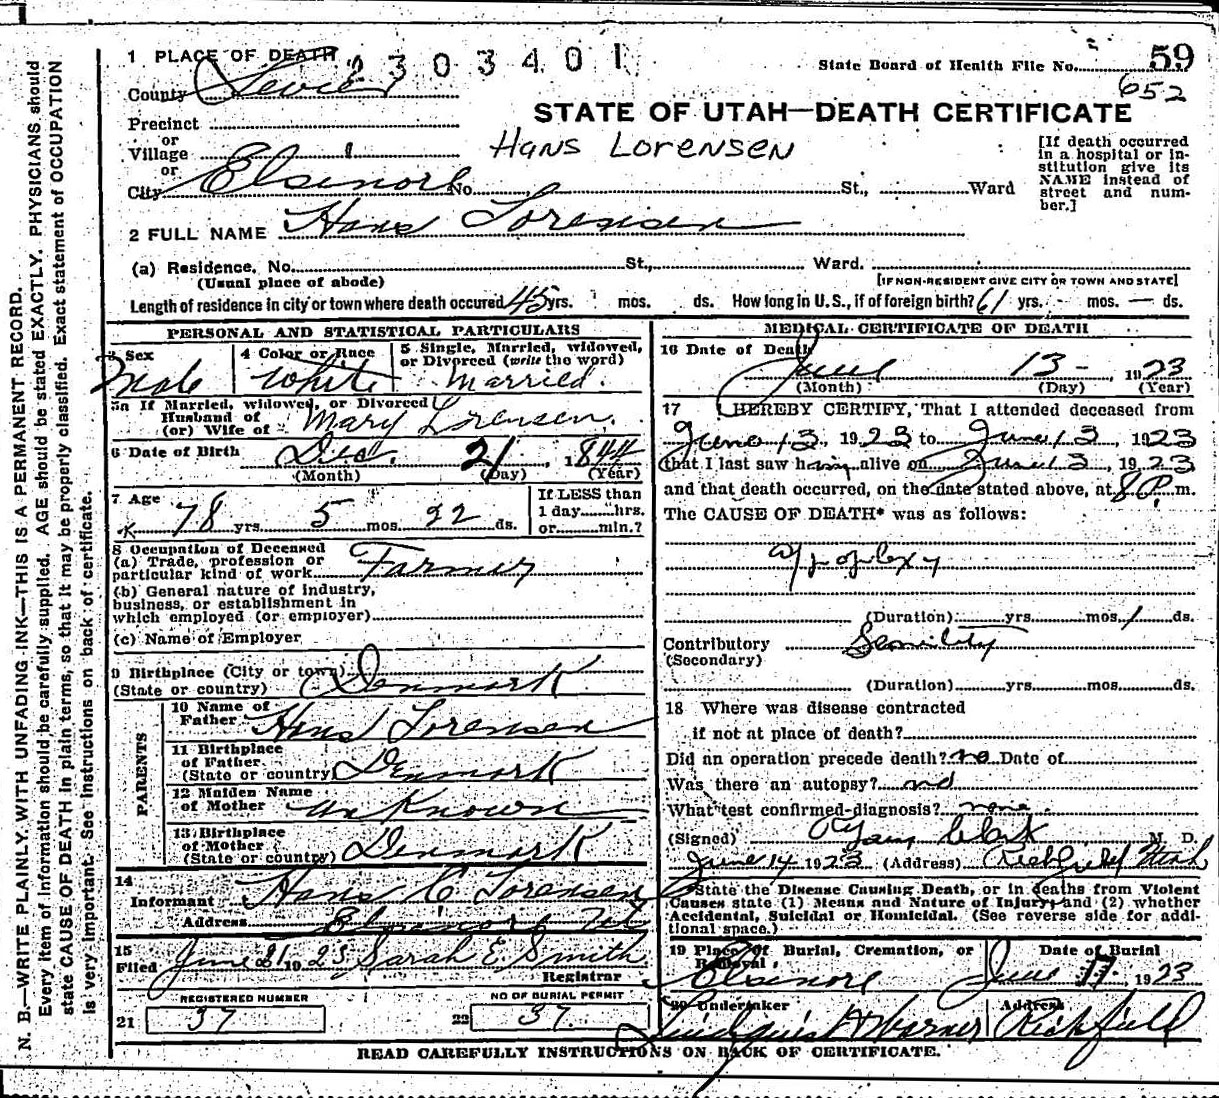 1 PLACE OF DEATH 2303401
State Board of Health File No. 59
652
County Sevier
STATE OF UTAH—DEATH CERTIFICATE
Precinct
or
Village
Hans Lorensen
or
City Elsinore No. St., Ward
[If death occurred
in a hospital or in-
stitution give its
NAME instead of
street and num-
ber.]
2 FULL NAME Hans Lorensen
(a) Residence. No. St., Ward.
(Usual place of abode) [IF NON-RESIDENT GIVE CITY OR TOWN AND STATE]
Length of residence in city or town where death occured 45 yrs. mos. ds. How long in U. S., if of foreign birth? 61 yrs. - mos. — ds.
PERSONAL AND STATISTICAL PARTICULARS
3 Sex
Male
4 Color or Race
White
5 Single, Married, widowed,
or Divorced (write the word)
Married.
5a If Married, widowed, or Divorced
Husband of
(or) Wife of Mary Lorensen.
6 Date of Birth Dec. 21, 1844
(Month) (Day) (Year)
7 Age
78 yrs. 5 mos. 22 ds.
If LESS than
1 day hrs.
or min.?
8 Occupation of Deceased
(a) Trade, profession or
particular kind of work Farmer
(b) General nature of industry,
business, or establishment in
which employed (or employer)
(c) Name of Employer
9 Birthplace (City or town)
(State or country) Denmark
PARENTS
10 Name of
Father Hans Lorensen
11 Birthplace
of Father
(State or country) Denmark
12 Maiden Name
of Mother Un Known
13 Birthplace
of Mother
(State or country) Denmark
14
Informant Hans C Lorensen
Address Elsinore Ut
15
Filed June 21 1923 Sarah E. Smith
Registrar
REGISTERED NUMBER
21 37
NO OF BURIAL PERMIT
22 37
MEDICAL CERTIFICATE OF DEATH
16 Date of Death
June 13 - 1923
(Month) (Day) (Year)
17 I HEREBY CERTIFY, That I attended deceased from
June 13, 1923 to June 13, 1923
that I last saw him alive on June 13, 1923
and that death occurred, on the date stated above, at 8 P. m.
The CAUSE OF DEATH* was as follows:
Apoplexy
(Duration) yrs. mos. 1 ds.
Contributory Senility
(Secondary)
(Duration) yrs. mos. ds.
18 Where was disease contracted
if not at place of death?
Did an operation precede death? no Date of
Was there an autopsy? no
What test confirmed diagnosis? none.
(Signed) Clark M. D.
June 14 1923 (Address) Richfield Utah
*State the Disease Causing Death, or in deaths from Violent
Causes state (1) Means and Nature of Injury; and (2) whether
Accidental, Suicidal or Homicidal. (See reverse side for addi-
tional space.)
19 Place of Burial, Cremation, or
Removal.
Elsinore
Date of Burial
June 17 1923
20 Undertaker
Warner
Address
Richfield
READ CAREFULLY INSTRUCTIONS ON BACK OF CERTIFICATE.
N. B.—WRITE PLAINLY, WITH UNFADING INK—THIS IS A PERMANENT RECORD.
Every item of information should be carefully supplied. AGE should be stated EXACTLY. PHYSICIANS should
state CAUSE OF DEATH in plain terms, so that it may be properly classified. Exact statement of OCCUPATION
is very important. See instructions on back of certificate.